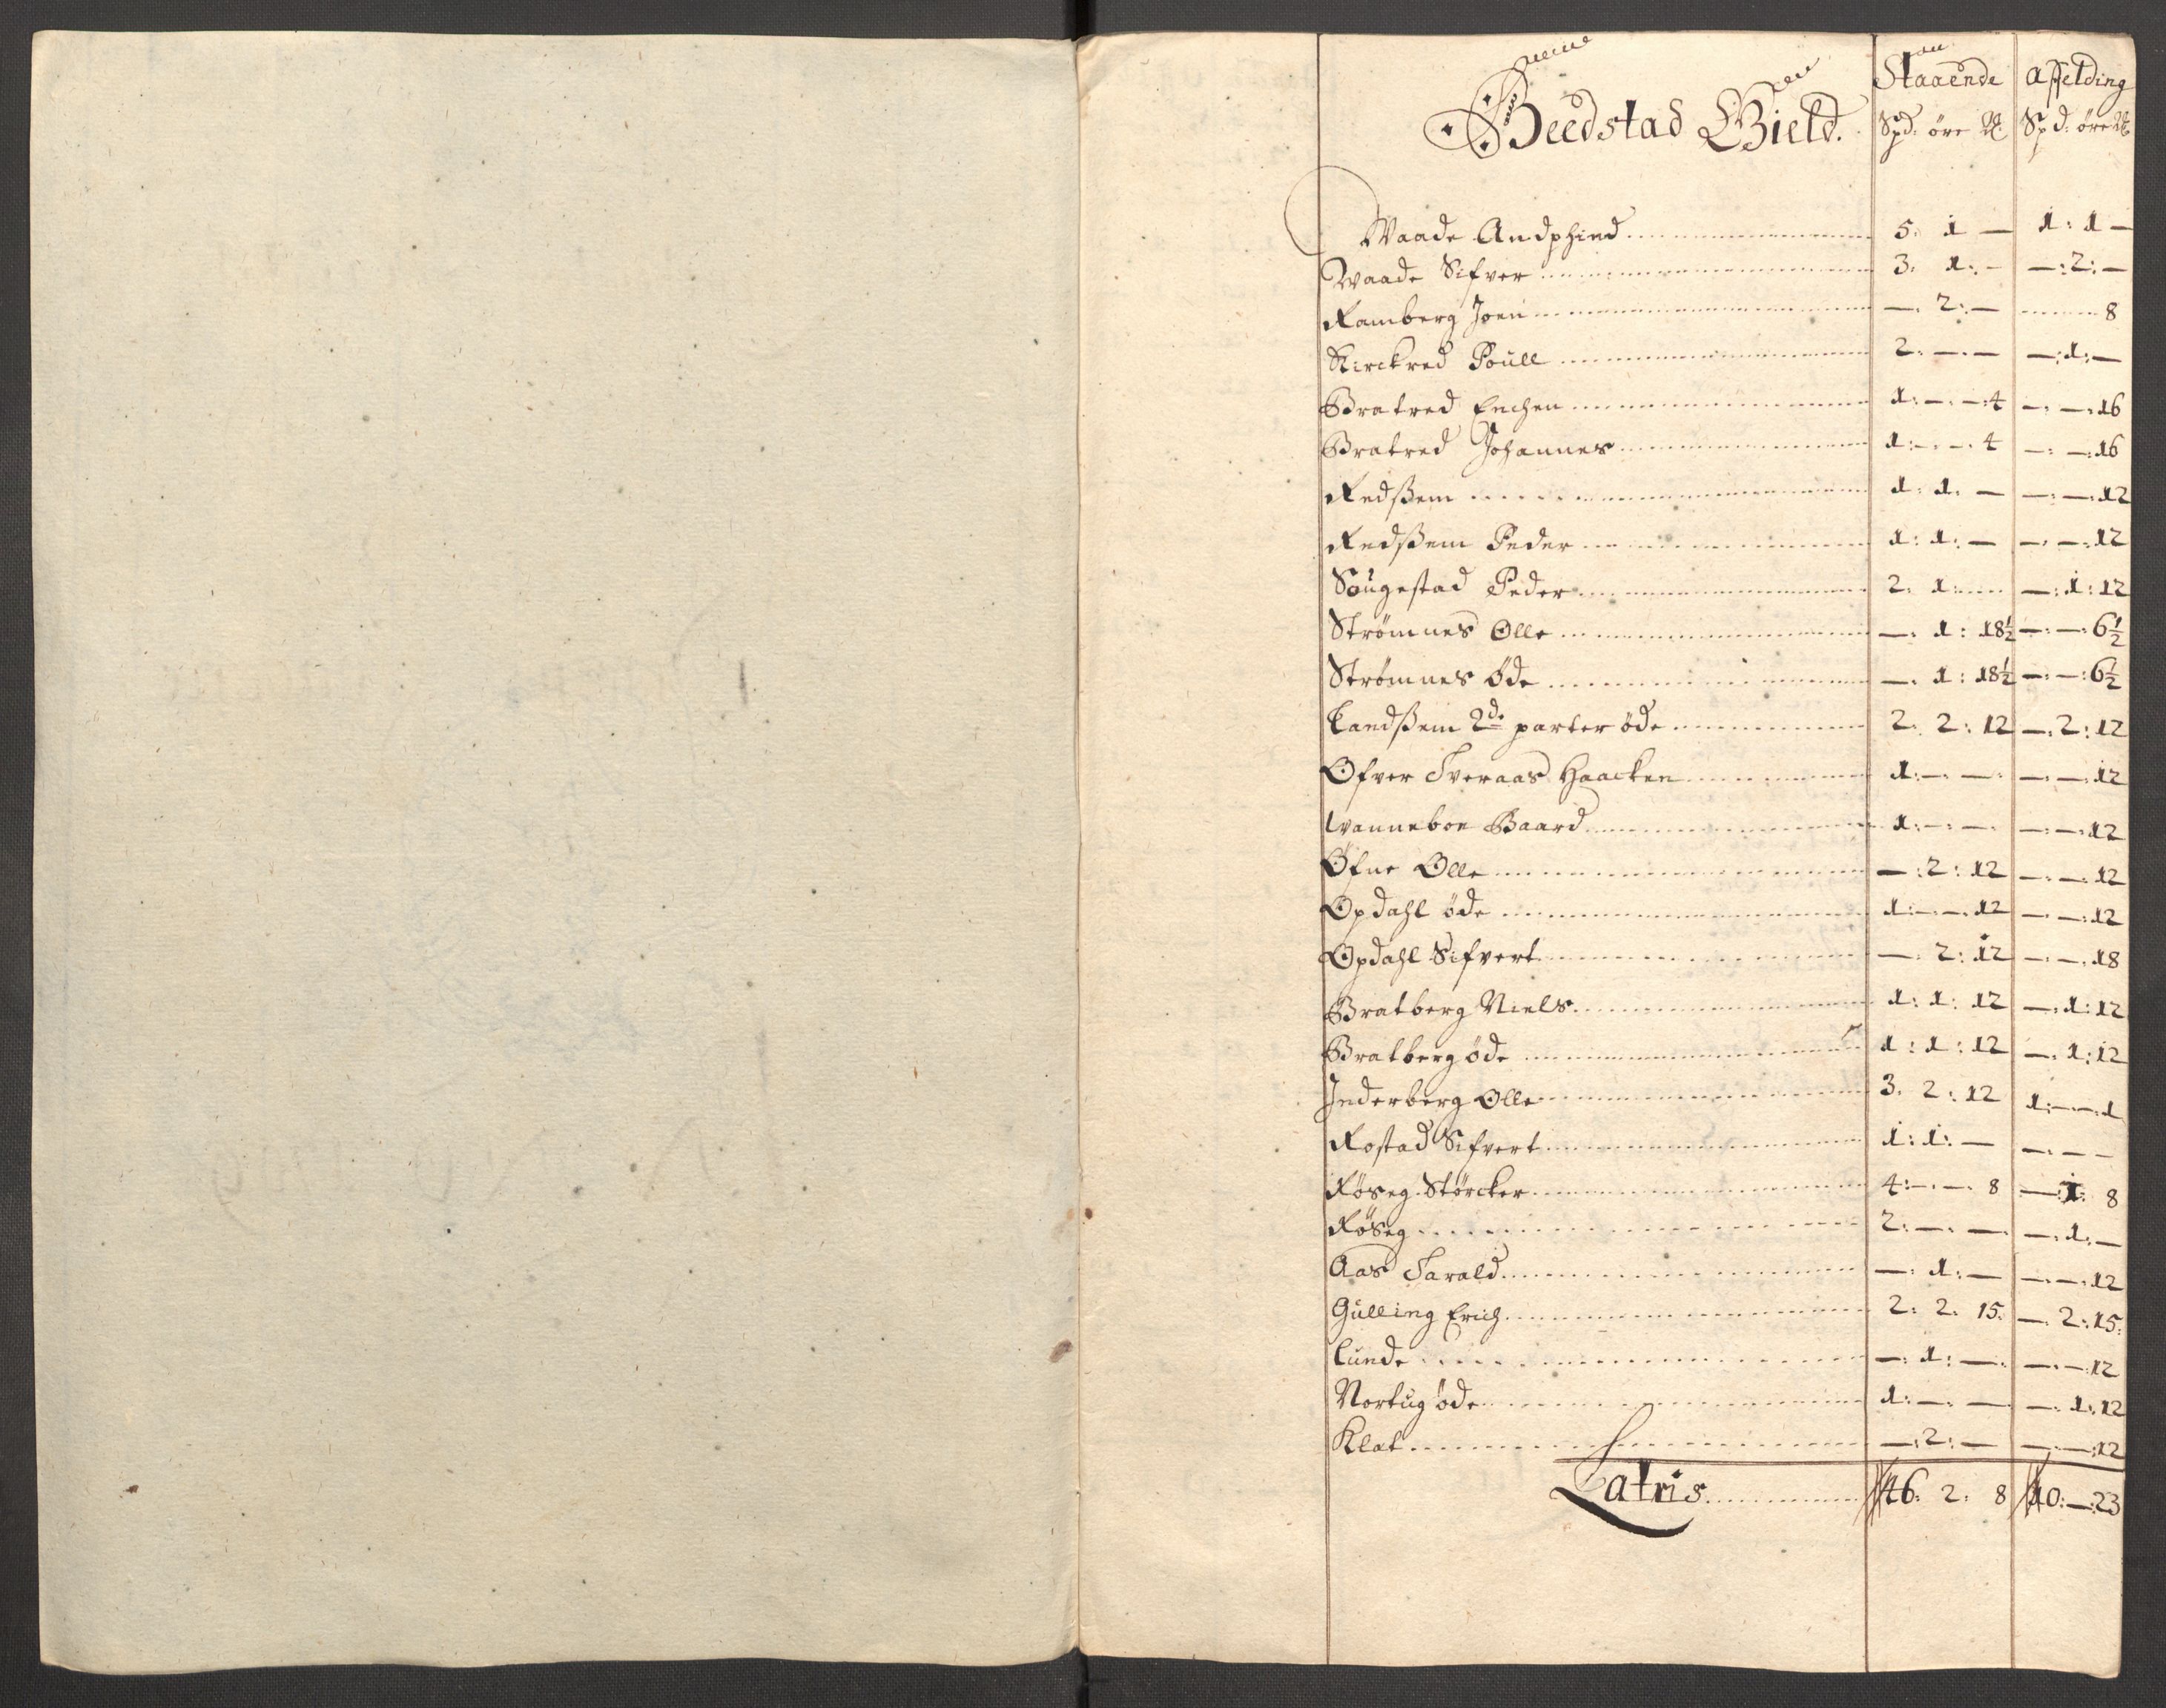 Beedstad Gield. Staaende afelding
Spd: öre Spd: öre
Waade Andphind 5: 1 — 1: 1 —
Waade Sifver 3: 1: — —: 2: —
Ramberg Joen —: 2: — 8
Kirckred Poull 2: —: — —: 1: —
Bratred Enchen 1: —: —: 4 —: —: 16
Bratred Johannes 1: —: —: 4 —: —: 16
Redssem 1: 1: — —: —: 12
Redssem Peder 1: 1: — —: —: 12
Sougestad Peder 2: 1: —: 1: 12
Strömnes Olle —: 1: 18½ —: —: 6½
Strömnes Öde —: 1: 18½ —: —: 6½
Landssem 2de parter öde 2: 2: 12 —: 2: 12
Öfver Tveraas Haacken 1: —: — —: —: 12
Wanneboe Baard 1: —: — —: —: 12
Öfne Olle —: 2: 12 —: —: 12
Opdahl öde 1: —: —: 12 —: —: 12
Opdahl Sifvert —: 2: 12 —: —: 18
Bratberg Niels 1: 1: 12 —: 1: 12
Bratberg öde 1: 1: 12 —: 1: 12
Inderberg Olle 3: 2: 12 1: —: —: 1
Rostad Sifvert 1: 1: — —: —: —
Röseg Störcker 4: —: —: 8 —: 1: 8
Röseg 2: —: — —: 1: —
Aas Tarald —: 1: — —: —: 12
Gulling Erich 2: 2: 15: —: 2: 15:
Lunde —: 1: — —: —: 12
Nortug öde 1: —: — —: 1: 12
Klat —: 2: — —: —: 12
Latris 46: 2: 8 10: —: 23